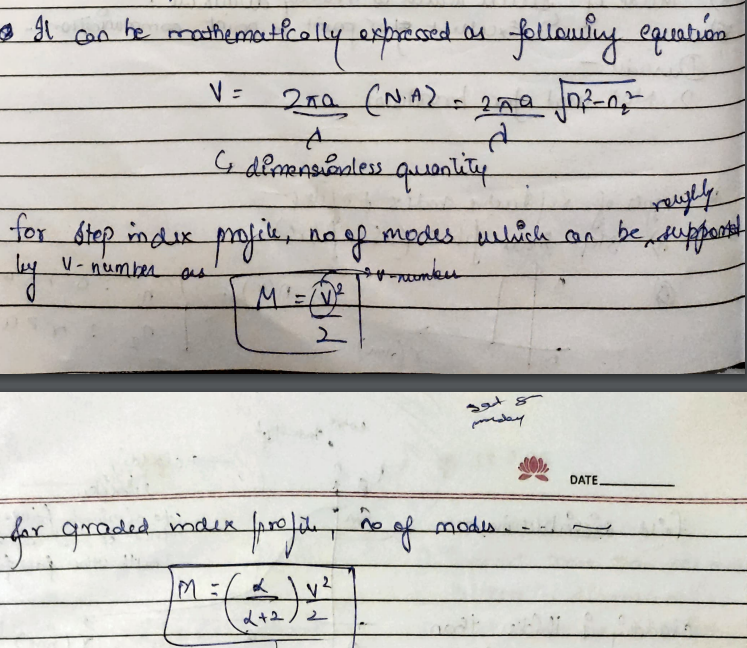 It can be mathematically expressed as following equation
V = 2πa/λ (N.A) = 2πa/λ √n₁²-n₂²
↳ dimensionless quantity
for step index profile, no of modes which can be roughly supported
by V-number as
M = V²/2 → V-number
DATE
for graded index profile, no of modes
M = (α/α+2) V²/2